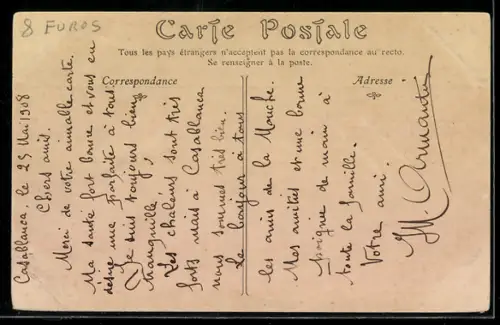 8 EUROS
Carte Postale
Tous les pays étrangers n'acceptent pas la correspondance au recto.
Se renseigner à la poste.
Correspondance
Adresse
Casablanca le 25 Mai 1908
Chers amis.
Merci de votre aimable carte.
Ma santé fort bonne et vous en
désire une parfaite à tous.
Je suis toujours bien
tranquille,
Les chaleurs sont très
forts mais à Casablanca
nous sommes très bien.
Le bonjour à tous
les amis de la Mouche.
Mes amitiés et une bonne
poignée de main à
toute la famille.
Votre ami.